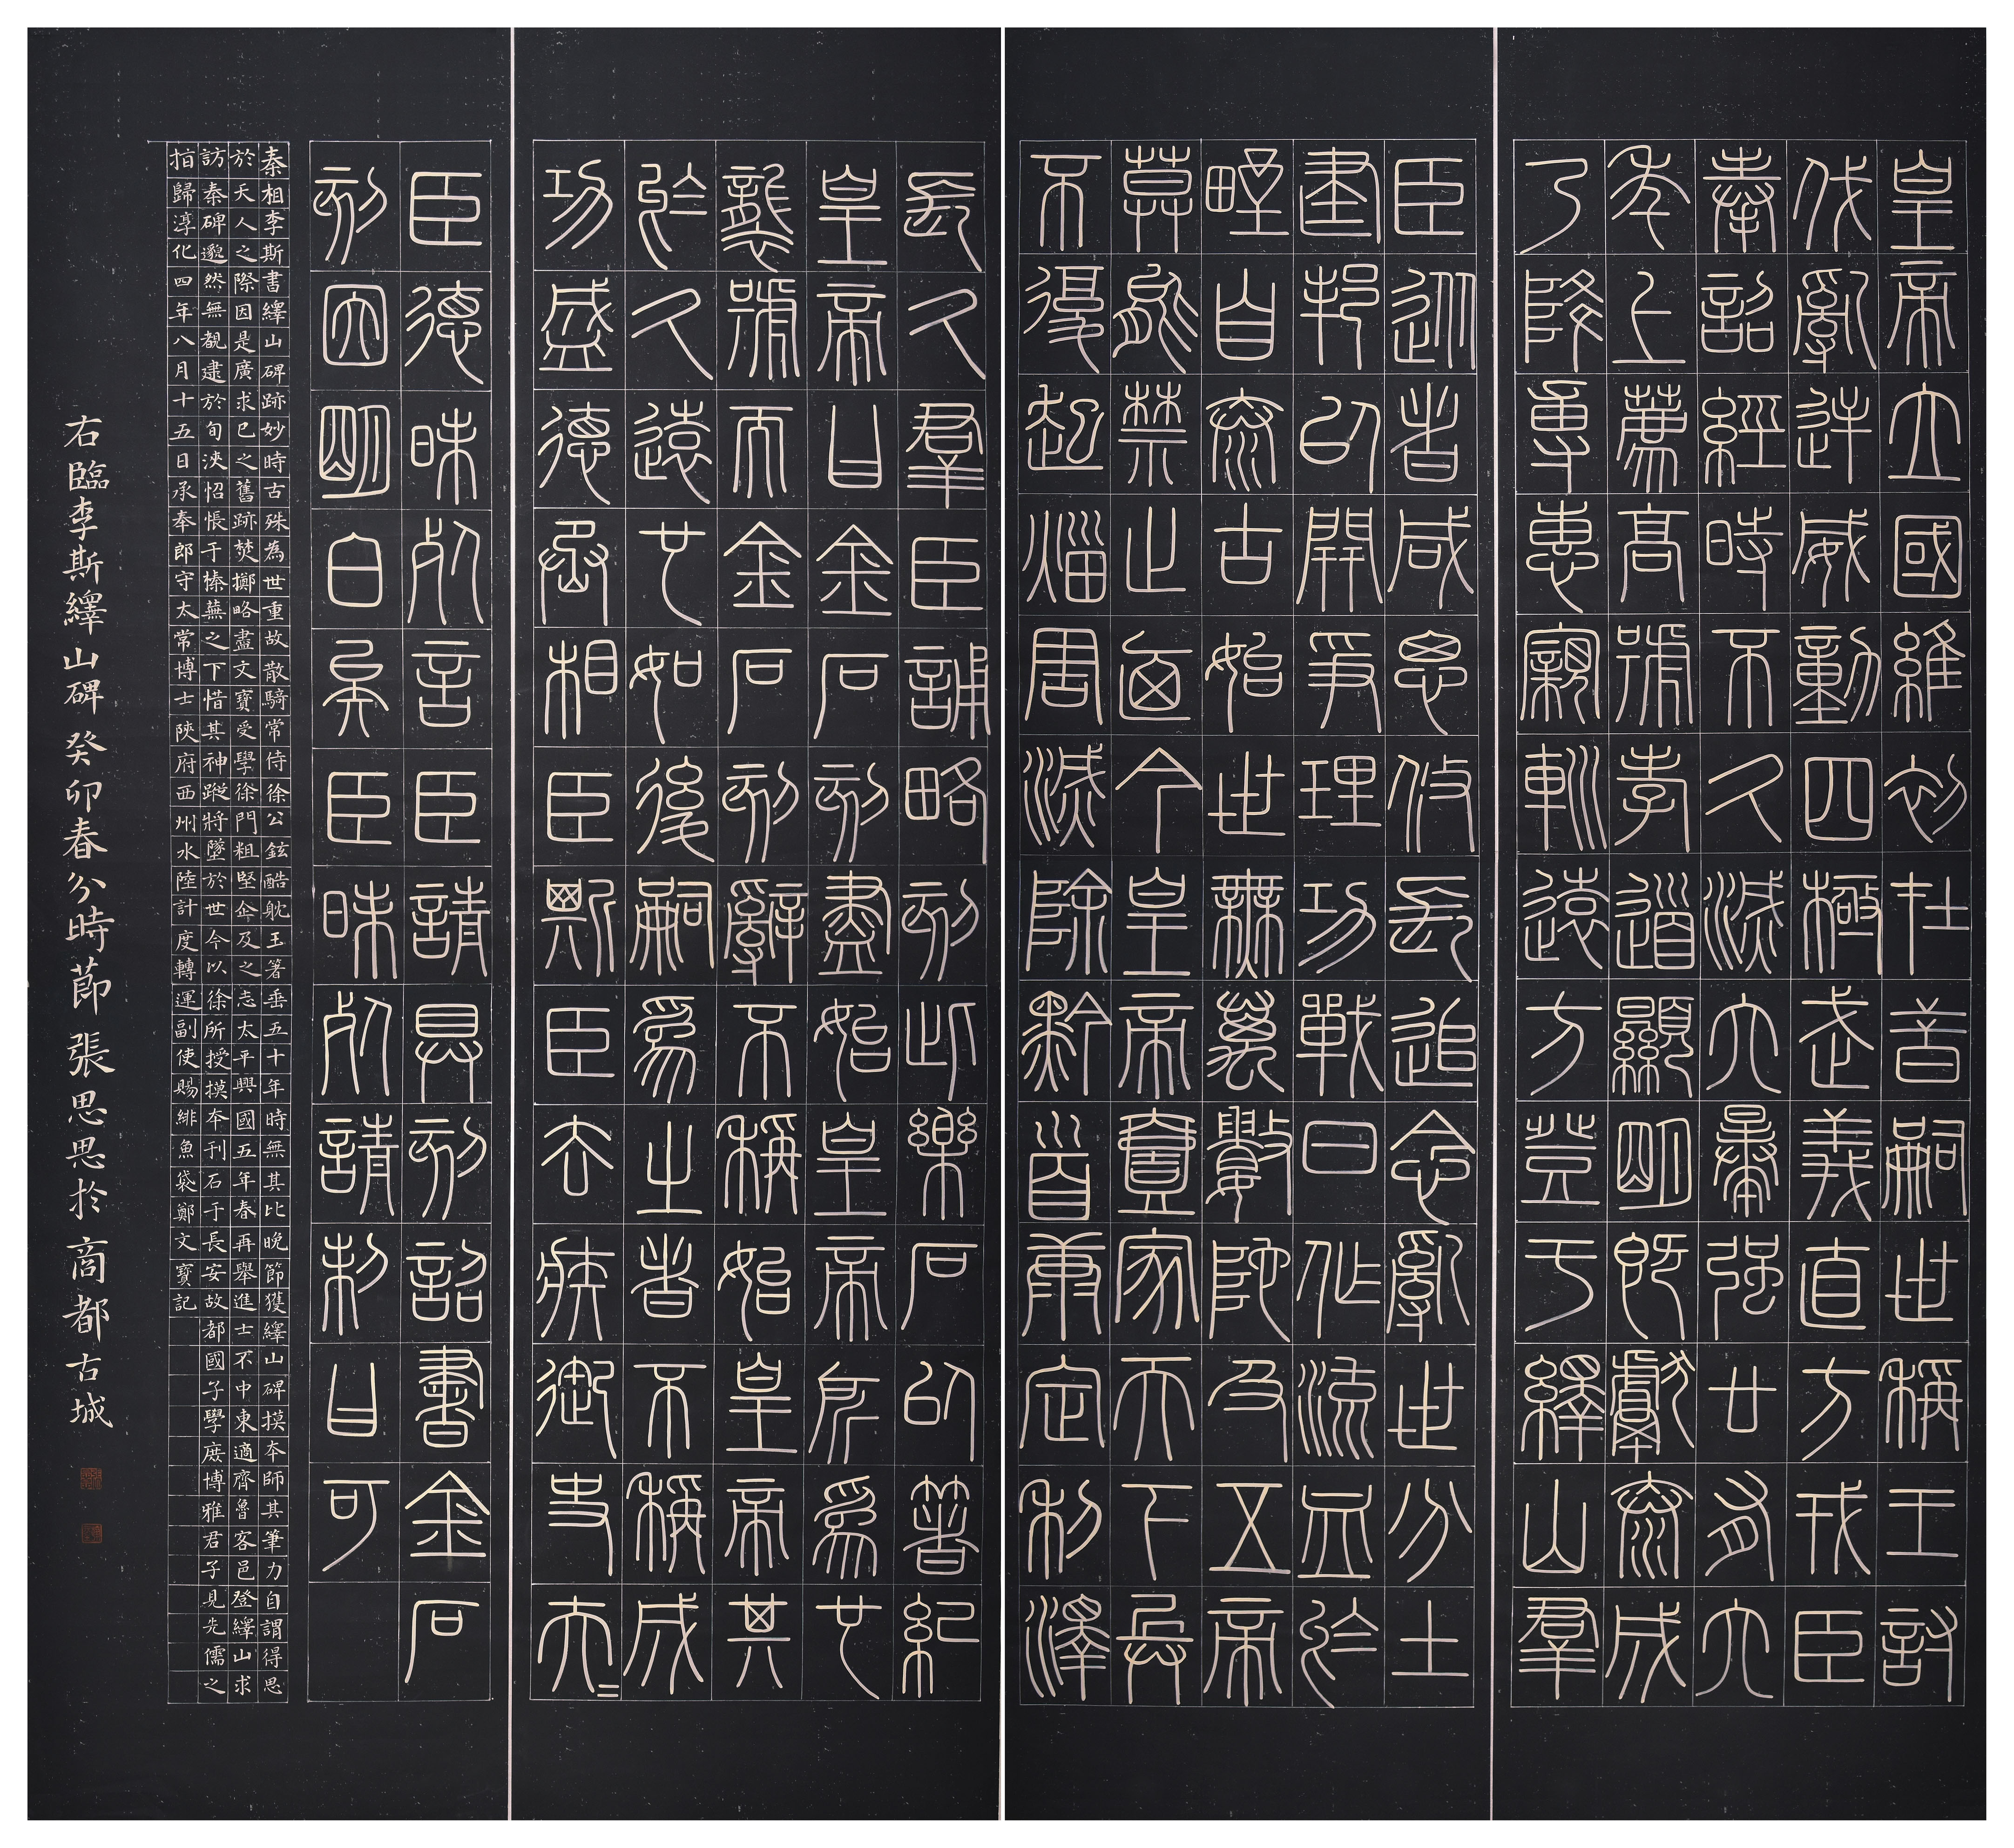 皇帝立國維初在昔嗣世稱王討
伐亂逆威動四極武義直方戎臣
奉詔經時不久滅六暴強廿有六
年上薦高號孝道顯明既獻泰成
乃降專惠親巡遠方登于繹山羣
臣從者咸思攸長追念亂世分土
建邦以開爭理功戰日作流血於
野自泰古始世無萬數陀及五帝
莫能禁止廼今皇帝壹家天下兵
不復起災害滅除黔首康定利澤
長久羣臣誦略刻此樂石以箸紀
皇帝曰金石刻盡始皇帝所為也
襲號而金石刻辭不稱始皇帝其
於久遠也如後嗣為之者不稱成
功盛德丞相臣斯臣去疾御史夫=
臣德昧死言臣請具刻詔書金石
刻因明白矣臣昧死請制曰可
秦相李斯書繹山碑跡妙時古殊為世重故散騎常侍徐公鉉酷躭玉箸垂五十年時無其比晚節獲繹山碑摸本師其筆力自謂得思
於天人之際因是廣求己之舊跡焚擲略盡文寶受學徐門粗堅企及之志太平興國五年春再舉進士不中東適齊魯客邑登繹山求
訪秦碑邈然無覩逮於旬浹怊悵于榛蕪之下惜其神蹤將墜於世今以徐所授摸本刊石于長安故都國子學庶博雅君子見先儒之
指歸淳化四年八月十五日承奉郎守太常博士陝府西州水陸計度轉運副使賜緋魚袋鄭文寶記
右臨李斯繹山碑癸卯春分時節張思思於商都古城